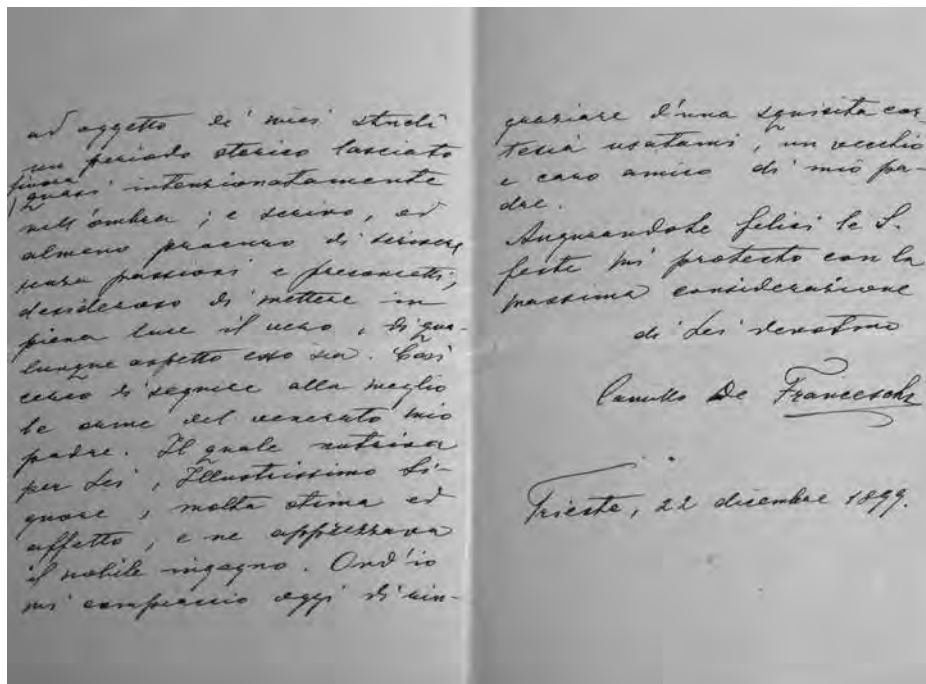 ad oggetto de' miei studi
un periodo storico lasciato
finora quasi intenzionatamente
nell'ombra; e scrivo, od
almeno procuro di scrivere
senza passioni e preconcetti,
desideroso di mettere in
piena luce il vero, di qua-
lunque aspetto esso sia. Così
cerco di seguire alla meglio
le orme del venerato mio
padre. Il quale nutriva
per Lei, Illustrissimo Si-
gnore, molta stima ed
affetto, e ne apprezzava
il nobile ingegno. Ond'io
mi compiaccio oggi di rin-
graziare d'una squisita cor-
tesia usatami, un vecchio
e caro amico di mio pa-
dre.
Augurandole felici le S.
feste mi protesto con la
massima considerazione
di Lei devotmo
Camillo De Franceschi
Trieste, 22 dicembre 1899.